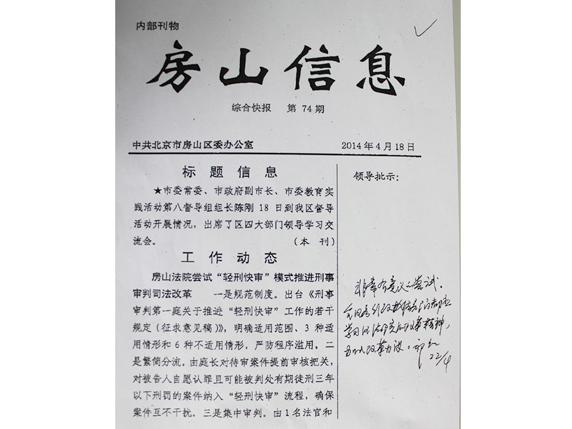 内部刊物
房山信息
综合快报 第 74 期
中共北京市房山区委办公室
2014 年 4 月 18 日
标题信息
★市委常委、市政府副市长、市委教育实
践活动第八督导组组长陈刚 18 日到我区督导
活动开展情况，出席了区四大部门领导学习交
流会。 （本刊）
工作动态
房山法院尝试“轻刑快审”模式推进刑事
审判司法改革 一是规范制度。出台《刑事
审判第一庭关于推进“轻刑快审”工作的若干
规定（征求意见稿）》，明确适用范围、3 种适
用情形和 6 种不适用情形，严防程序滥用。二
是繁简分流。由庭长对待审案件提前审核把关，
对被告人自愿认罪且可能被判处有期徒刑三年
以下刑罚的案件纳入“轻刑快审”流程，确保
案件互不干扰。三是集中审判。由 1 名法官和
领导批示：
非常有意义的尝试。
22/4